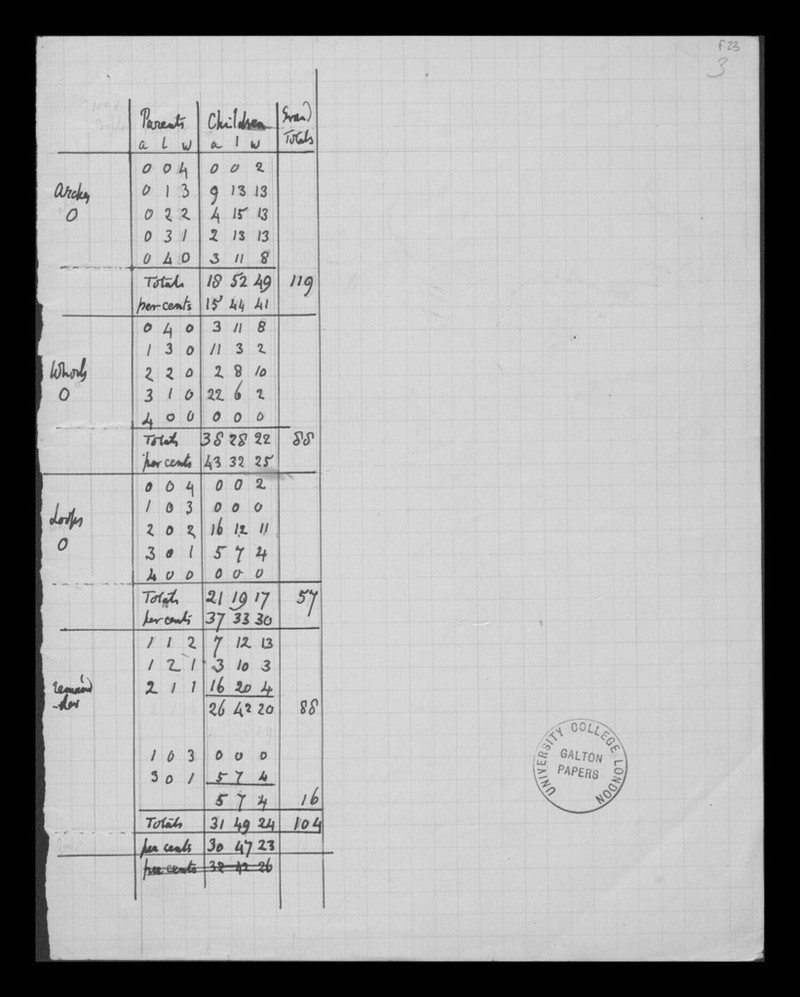 f 23
3
Parents Children Grand
a l w a l w Totals
0 0 4 0 0 2
Arches 0 1 3 9 13 13
0 0 2 2 4 15 13
0 3 1 2 13 13
0 4 0 3 11 8
Totals 18 52 49 119
per cents 15 44 41
0 4 0 3 11 8
1 3 0 11 3 2
Whorls 2 2 0 2 8 10
0 3 1 0 22 6 2
4 0 0 0 0 0
Totals 38 28 22 88
per cents 43 32 25
0 0 4 0 0 2
1 0 3 0 0 0
Loops 2 0 2 16 12 11
0 3 0 1 5 7 4
4 0 0 0 0 0
Totals 21 19 17 57
per cents 37 33 30
1 1 2 7 12 13
1 2 1 3 10 3
remain 2 1 1 16 20 4
-der 26 42 20 88
1 0 3 0 0 0
3 0 1 5 7 4
5 7 4 16
Totals 31 49 24 104
per cents 30 47 23
per cents 32 42 26
UNIVERSITY COLLEGE LONDON
GALTON
PAPERS